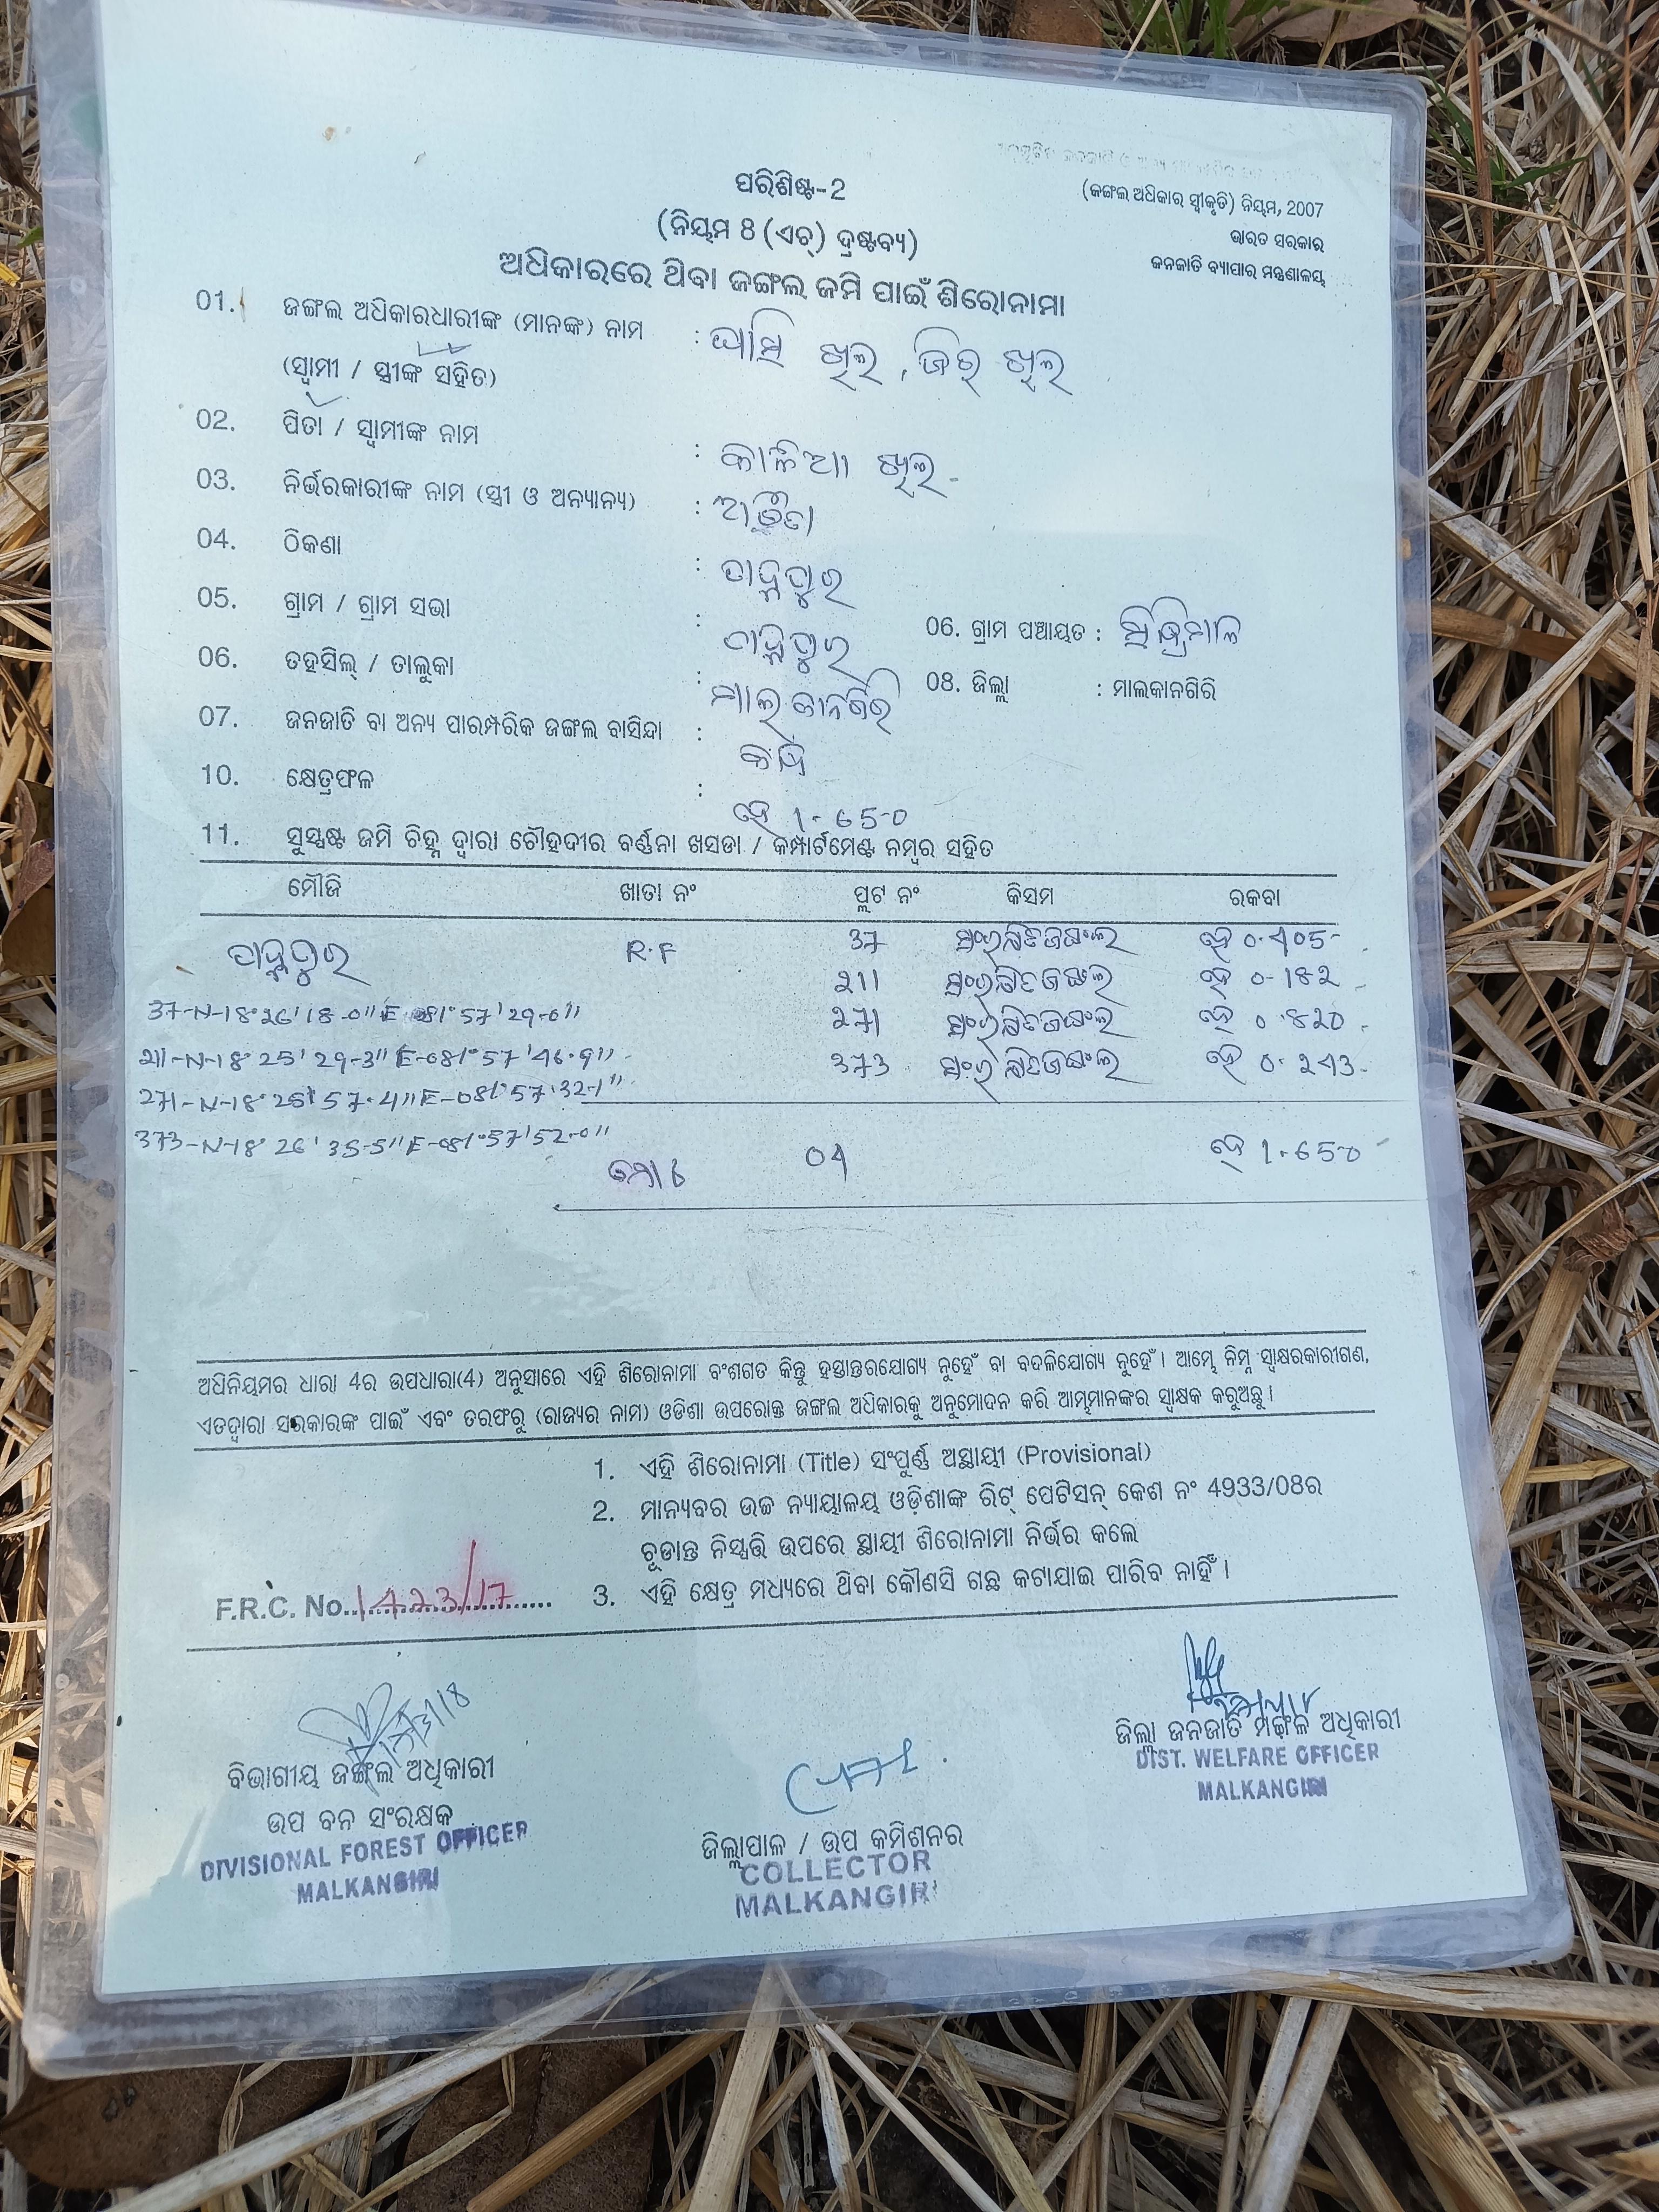 (ଜଙ୍ଗଲ ଅଧିକାର ସ୍ୱୀକୃତି) ନିୟମ, 2007
ଭାରତ ସରକାର
ଜନଜାତି ବ୍ୟାପାର ମନ୍ତ୍ରଣାଳୟ
ପରିଶିଷ୍ଟ-2
(ନିୟମ 8 (ଏଚ୍) ଦ୍ରଷ୍ଟବ୍ୟ)
ଅଧିକାରରେ ଥିବା ଜଙ୍ଗଲ ଜମି ପାଇଁ ଶିରୋନାମା
01. ଜଙ୍ଗଲ ଅଧିକାରଧାରୀଙ୍କ (ମାନଙ୍କ) ନାମ : ଘାସି ଖିଲ, ଜିର ଖିଲ
(ସ୍ୱାମୀ / ସ୍ତ୍ରୀଙ୍କ ସହିତ)
02. ପିତା / ସ୍ୱାମୀଙ୍କ ନାମ : କାଳିଆ ଖିଲ
03. ନିର୍ଭରକାରୀଙ୍କ ନାମ (ସ୍ତ୍ରୀ ଓ ଅନ୍ୟାନ୍ୟ) :
04. ଠିକଣା :
05. ଗ୍ରାମ / ଗ୍ରାମ ସଭା : 06. ଗ୍ରାମ ପଞ୍ଚାୟତ :
06. ତହସିଲ୍ / ତାଲୁକା : ମାଲକାନଗିରି 08. ଜିଲ୍ଲା : ମାଲକାନଗିରି
07. ଜନଜାତି ବା ଅନ୍ୟ ପାରମ୍ପରିକ ଜଙ୍ଗଲ ବାସିନ୍ଦା :
10. କ୍ଷେତ୍ରଫଳ : ହେ 1.650
11. ସୁସ୍ପଷ୍ଟ ଜମି ଚିହ୍ନ ଦ୍ୱାରା ଚୌହଦୀର ବର୍ଣ୍ଣନା ଖସଡା / କମ୍ପାର୍ଟମେଣ୍ଟ ନମ୍ବର ସହିତ
ମୌଜି ଖାତା ନଂ ପ୍ଲଟ ନଂ କିସମ ରକବା
R.F 37 ସଂରକ୍ଷିତ ଜଙ୍ଗଲ ହେ 0.405
211 ସଂରକ୍ଷିତ ଜଙ୍ଗଲ ହେ 0.182
37-N-18°26'18.0" E-081°57'29.0" 271 ସଂରକ୍ଷିତ ଜଙ୍ଗଲ ହେ 0.820
211-N-18°25'29.3" E-081°57'46.9" 373 ସଂରକ୍ଷିତ ଜଙ୍ଗଲ ହେ 0.243
271-N-18°25'57.4" E-081°57'32.1"
373-N-18°26'35.5" E-081°57'52.0"
ମୋଟ 04 ହେ 1.650
ଅଧିନିୟମର ଧାରା 4ର ଉପଧାରା(4) ଅନୁସାରେ ଏହି ଶିରୋନାମା ବଂଶଗତ କିନ୍ତୁ ହସ୍ତାନ୍ତରଯୋଗ୍ୟ ନୁହେଁ ବା ବଦଳିଯୋଗ୍ୟ ନୁହେଁ । ଆମ୍ଭେ ନିମ୍ନ ସ୍ୱାକ୍ଷରକାରୀଗଣ,
ଏତଦ୍ୱାରା ସରକାରଙ୍କ ପାଇଁ ଏବଂ ତରଫରୁ (ରାଜ୍ୟର ନାମ) ଓଡିଶା ଉପରୋକ୍ତ ଜଙ୍ଗଲ ଅଧିକାରକୁ ଅନୁମୋଦନ କରି ଆମ୍ଭମାନଙ୍କର ସ୍ୱାକ୍ଷକ କରୁଅଛୁ ।
1. ଏହି ଶିରୋନାମା (Title) ସଂପୂର୍ଣ୍ଣ ଅସ୍ଥାୟୀ (Provisional)
2. ମାନ୍ୟବର ଉଚ୍ଚ ନ୍ୟାୟାଳୟ ଓଡ଼ିଶାଙ୍କ ରିଟ୍ ପେଟିସନ୍ କେଶ ନଂ 4933/08ର
ଚୂଡାନ୍ତ ନିସ୍ପତ୍ତି ଉପରେ ସ୍ଥାୟୀ ଶିରୋନାମା ନିର୍ଭର କଲେ
3. ଏହି କ୍ଷେତ୍ର ମଧ୍ୟରେ ଥିବା କୌଣସି ଗଛ କଟାଯାଇ ପାରିବ ନାହିଁ ।
F.R.C. No. 1423/17
ବିଭାଗୀୟ ଜଙ୍ଗଲ ଅଧିକାରୀ
ଉପ ବନ ସଂରକ୍ଷକ
DIVISIONAL FOREST OFFICER
MALKANGIRI
ଜିଲ୍ଲାପାଳ / ଉପ କମିଶନର
COLLECTOR
MALKANGIRI
ଜିଲ୍ଲା ଜନଜାତି ମଙ୍ଗଳ ଅଧିକାରୀ
DIST. WELFARE OFFICER
MALKANGIRI